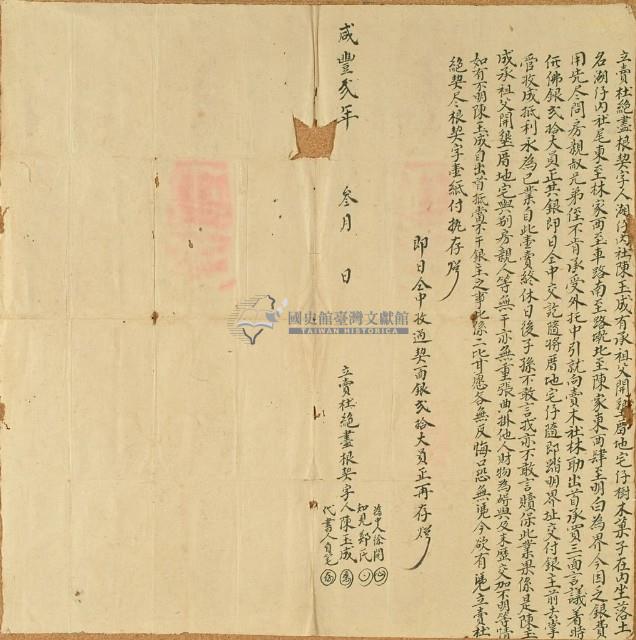 立賣杜絕盡根契字人湖仔內社陳玉成有承祖父開墾厝地宅仔樹木菓子在內坐落土
名湖仔內社尾東至林家西至車路南至路墘北至陳家東西肆至明白為界今因乏銀費
用先尽問房親叔兄弟侄不肯承受外托中引就向賣本社林助出首承買三面言議着時
價佛銀弍拾大員正其銀即日仝中交訖隨將厝地宅仔隨即踏明界址交付銀主前去掌
管收成抵利永為己業自此壹賣終休日後子孫不敢言找亦不敢言贖保此業果係是陳玉
成承祖父開墾厝地宅與別房親人等無干亦無重張典掛他人財物為碍與及來歷交加不明等情
如有不明陳玉成自出首抵當不干銀主之事此係二比甘愿各無反悔口恐無憑今欲有憑立賣杜
絕契尽根契字壹紙付执存炤
即日仝中收過契面銀弍拾大員正再存炤
為中人徐開
知見鄭氏
立賣杜絕盡根契字人陳玉成
代書人自笔
咸豐弍年 叁月 日
國史館臺灣文獻館
TAIWAN HISTORICA